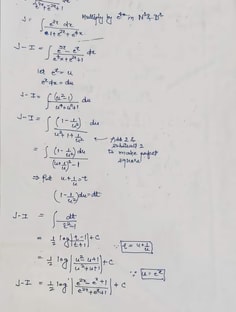 e^{4x}+e^{2x}+1
J = ∫ e^{2x} dx / e^{4x}+e^{2x}+e^{4x} Multiply by e^{4x} in N^r & D^r
J-I = ∫ e^{3x} - e^x / e^{4x}+e^{2x}+1 dx
let e^x = u
e^x dx = du
J-I = ∫ (u²-1) / u⁴+u²+1 du
J-I = ∫ (1-1/u²) / u²+1+1/u² du
Add 2 & subtract 2
to make perfect
square
= ∫ (1-1/u²) du / (u+1/u)²-1
⇒ Put u+1/u = t
(1-1/u²) du = dt
J-I = ∫ dt / t²-1
= 1/2 log |t-1 / t+1| + c ∵ t = u+1/u
= 1/2 log |u²-u+1 / u²+u+1| + c
∵ u = e^x
J-I = 1/2 log |e^{2x}-e^x+1 / e^{2x}+e^x+1| + c